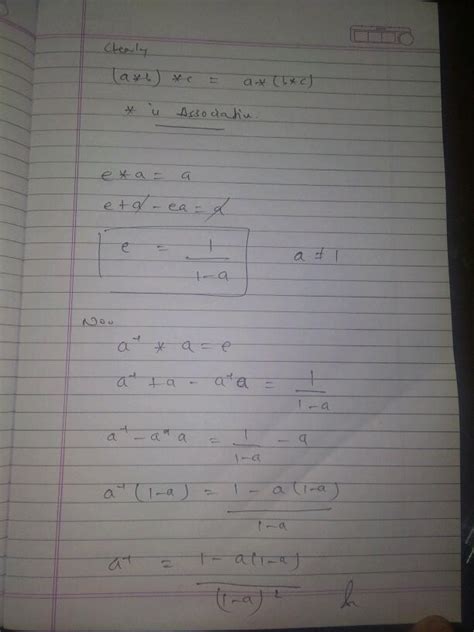 Clearly
(a*b) *c = a*(b*c)
* is Associative.
e*a = a
e+a - ea = a
e = 1/(1-a)    a ≠ 1
Now
a⁻¹ * a = e
a⁻¹ + a - a⁻¹a = 1/(1-a)
a⁻¹ - a⁻¹a = 1/(1-a) - a
a⁻¹(1-a) = (1 - a(1-a))/(1-a)
a⁻¹ = (1 - a(1-a))/(1-a)²